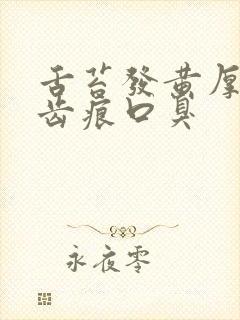 舌苔發黃厚
齿痕口臭
永夜零